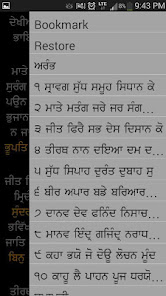 9:43 PM
Bookmark
Restore
ਅਰੰਭ
੧ ਸ੍ਰਾਵਗ ਸੁੱਧ ਸਮੂਹ ਸਿਧਾਨ ਕੇ
੨ ਮਾਤੇ ਮਤੰਗ ਜਰੇ ਜਰ ਸੰਗ...
੩ ਜੀਤ ਫਿਰੈ ਸਭ ਦੇਸ ਦਿਸਾਨ ਕੋ
੪ ਤੀਰਥ ਨਾਨ ਦਇਆ ਦਮ ਦ...
੫ ਸੁੱਧ ਸਿਪਾਹ ਦੁਰੰਤ ਦੁਬਾਹ ਸੁ
੬ ਬੀਰ ਅਪਾਰ ਬਡੇ ਬਰਿਆਰ...
੭ ਦਾਨਵ ਦੇਵ ਫਨਿੰਦ ਨਿਸਾਚ...
੮ ਮਾਨਵ ਇੰਦ੍ਰ ਗਜਿੰਦ੍ਰ ਨਰਾਧ...
੯ ਕਹਾ ਭਯੋ ਜੋ ਦੋਊ ਲੋਚਨ ਮੂੰਦ
੧੦ ਕਾਹੂ ਲੈ ਪਾਹਨ ਪੂਜ ਧਰਯੋ
ਦੇਖੀ
ਮਾਤੇ
ਜੀਤ